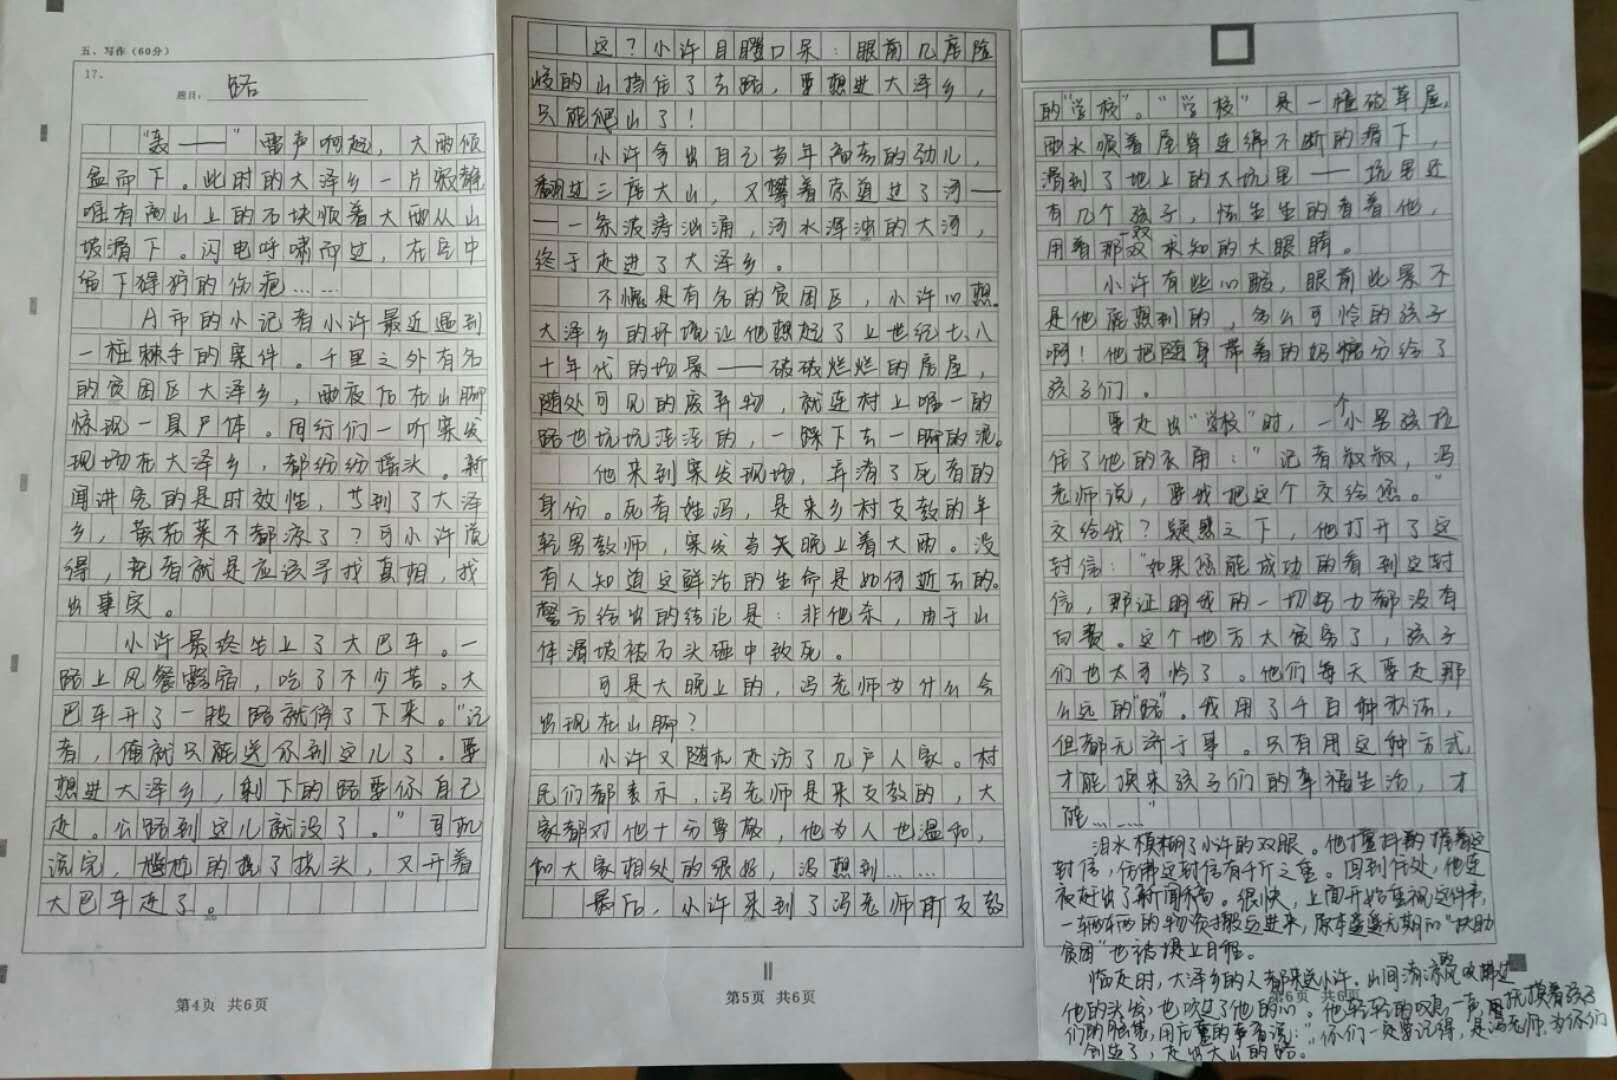 五、写作（60分）
17.
题目：路
“轰——”雷声响起，大雨倾
盆而下。此时的大泽乡一片寂静
唯有高山上的石块顺着大雨从山
坡滑下。闪电呼啸而过，在空中
留下狰狞的伤疤……
A市的小记者小许最近遇到
一桩棘手的案件。千里之外有名
的贫困区大泽乡，雨夜后在山脚
惊现一具尸体。同行们一听案发
现场在大泽乡，都纷纷摇头。新
闻讲究的是时效性，等到了大泽
乡，黄花菜不都凉了？可小许觉
得，记者就是应该寻找真相，找
出事实。
小许最终坐上了大巴车。一
路上风餐露宿，吃了不少苦。大
巴车开了一段路就停了下来。“记
者，俺就只能送你到这儿了。要
想进大泽乡，剩下的路要你自己
走。公路到这儿就没了。”司机
说完，尴尬的挠了挠头，又开着
大巴车走了。
第4页 共6页
这？小许目瞪口呆：眼前几座险
峻的山挡住了去路，要想进大泽乡，
只能爬山了！
小许拿出自己当年高考的劲儿，
翻过三座大山，又攀着索道过了河——
——一条波涛汹涌，河水浑浊的大河，
终于走进了大泽乡。
不愧是有名的贫困区，小许心想。
大泽乡的环境让他想起了上世纪七、八
十年代的场景——破破烂烂的房屋，
随处可见的废弃物，就连村上唯一的
路也坑坑洼洼的，一踩下去一脚的泥。
他来到案发现场，弄清了死者的
身份。死者姓冯，是来乡村支教的年
轻男教师，案发当天晚上着大雨。没
有人知道这鲜活的生命是如何逝去的。
警方给出的结论是：非他杀，由于山
体滑坡被石头砸中致死。
可是大晚上的，冯老师为什么会
出现在山脚？
小许又随机走访了几户人家。村
民们都表示，冯老师是来支教的，大
家都对他十分尊敬，他为人也温和，
和大家相处的很好，没想到……
最后，小许来到了冯老师所支教
第5页 共6页
的“学校”。“学校”是一幢破草屋，
雨水顺着屋草连绵不断的滑下，
滑到了地上的大坑里——坑里还
有几个孩子，怯生生的看着他，
用着那一双求知的大眼睛。
小许有些心酸，眼前此景不
是他能想到的，多么可怜的孩子
啊！他把随身带着的奶糖分给了
孩子们。
要走出“学校”时，一个小男孩拉
住了他的衣角：“记者叔叔，冯
老师说，要我把这个交给您。”
交给我？疑惑之下，他打开了这
封信：“如果您能成功的看到这封
信，那证明我的一切努力都没有
白费。这个地方太贫穷了，孩子
们也太可怜了。他们每天要走那
么远的“路”。我用了千百种办法，
但都无济于事。只有用这种方式，
才能换来孩子们的幸福生活，才
能……”
泪水模糊了小许的双眼。他颤抖的捧着这
封信，仿佛这封信有千斤之重。回到住处，他连
夜赶出了新闻稿。很快，上面开始重视这件事，
一辆辆的物资搬运进来，原本遥遥无期的“扶助
贫困”也被提上日程。
临走时，大泽乡的人都来送小许。山间清凉的风吹拂过
他的头发，也吹过了他的心。他轻轻的叹息一声，抚摸着孩子
们的脑袋，用庄重的声音说：“你们一定要记得，是冯老师，为你们
创造了，走出大山的路。
第6页 共6页